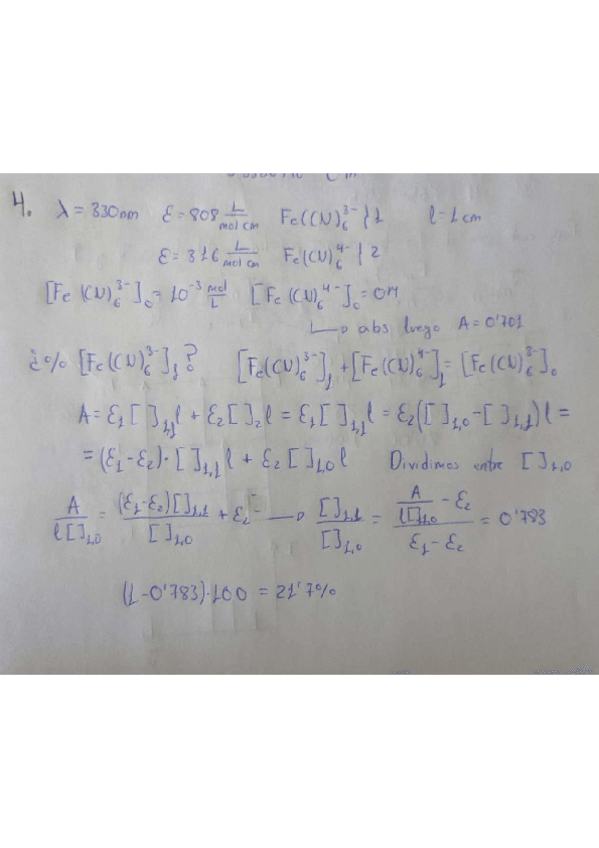 4. λ = 330nm   ε = 808 L/mol cm   Fe(CN)₆³⁻ } 1   l = 1 cm
ε = 316 L/mol cm   Fe(CN)₆⁴⁻ } 2
[Fe (CN)₆³⁻]₀ = 10⁻³ mol/L   [Fe (CN)₆⁴⁻]₀ = 0M
↳ abs luego A = 0'701
¿% [Fe (CN)₆³⁻]f ?   [Fe(CN)₆³⁻]f + [Fe(CN)₆⁴⁻]f = [Fe(CN)₆³⁻]₀
A = ε₁ [ ]₁,f l + ε₂ [ ]₂ l = ε₁ [ ]₁,f l = ε₂ ([ ]₁,₀ - [ ]₁,f) l =
= (ε₁ - ε₂) · [ ]₁,f l + ε₂ [ ]₁,₀ l   Dividimos entre [ ]₁,₀
A / l[ ]₁,₀ = (ε₁ - ε₂)[ ]₁,f / [ ]₁,₀ + ε₂ → [ ]₁,f / [ ]₁,₀ = (A / l[ ]₁,₀ - ε₂) / (ε₁ - ε₂) = 0'783
(1 - 0'783) · 100 = 21'7%